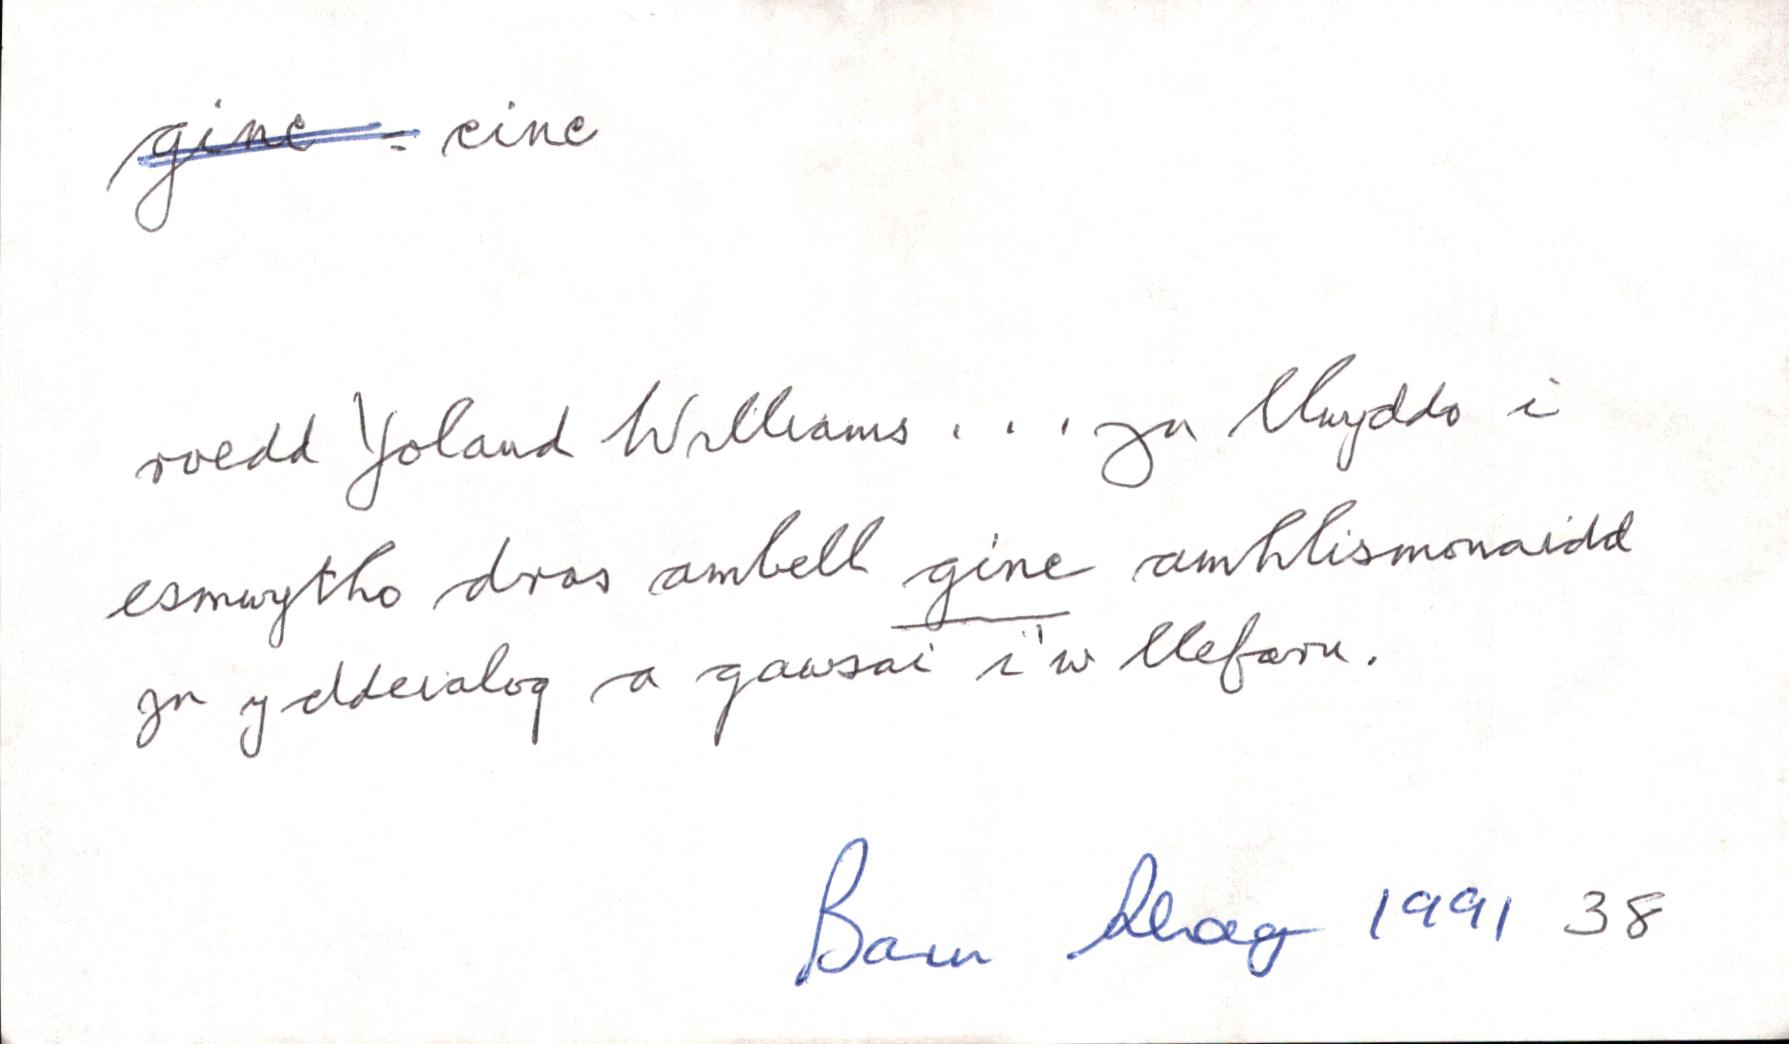 ginc = cinc
roedd Yoland Williams . . . yn llwyddo i
esmwytho dros ambell ginc amhlismonaidd
yn y ddeialog a gawsai i'w llefaru.
Barn Rhag 1991 38